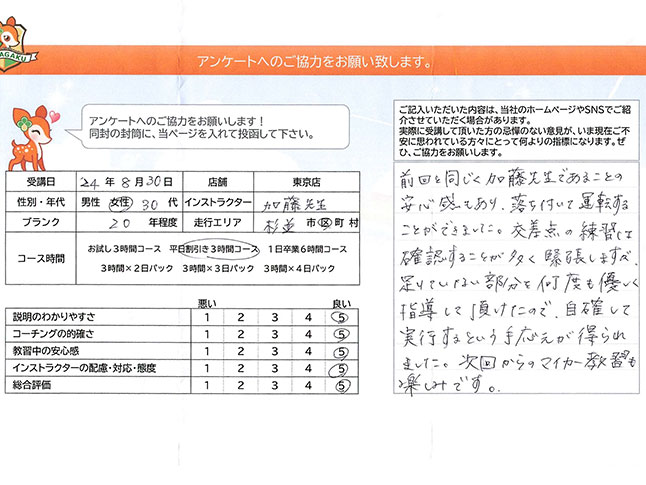 AGAKU
アンケートへのご協力をお願い致します。
アンケートへのご協力をお願いします！
同封の封筒に、当ページを入れて投函して下さい。
受講日 24年 8月30日 店舗 東京店
性別・年代 男性 女性 30代 インストラクター 加藤先生
ブランク 20 年程度 走行エリア 杉並 市 区 町 村
コース時間 お試し3時間コース 平日割引き3時間コース 1日卒業6時間コース
3時間×2日パック 3時間×3日パック 3時間×4日パック
悪い 良い
説明のわかりやすさ 1 2 3 4 5
コーチングの的確さ 1 2 3 4 5
教習中の安心感 1 2 3 4 5
インストラクターの配慮・対応・態度 1 2 3 4 5
総合評価 1 2 3 4 5
ご記入いただいた内容は、当社のホームページやSNSでご紹
介させていただく場合があります。
実際に受講して頂いた方の忌憚のない意見が、いま現在ご不
安に思われている方々にとって何よりの指標になります。ぜ
ひ、ご協力をお願いします。
前回と同じく加藤先生であることの
安心感もあり、落ち付いて運転する
ことができました。交差点の練習は
確認することが多く緊張しますが、
足りていない部分を何度も優しく
指導して頂けたので、自確して
実行するという手応えが得られ
ました。次回からのマイカー教習も
楽しみです。